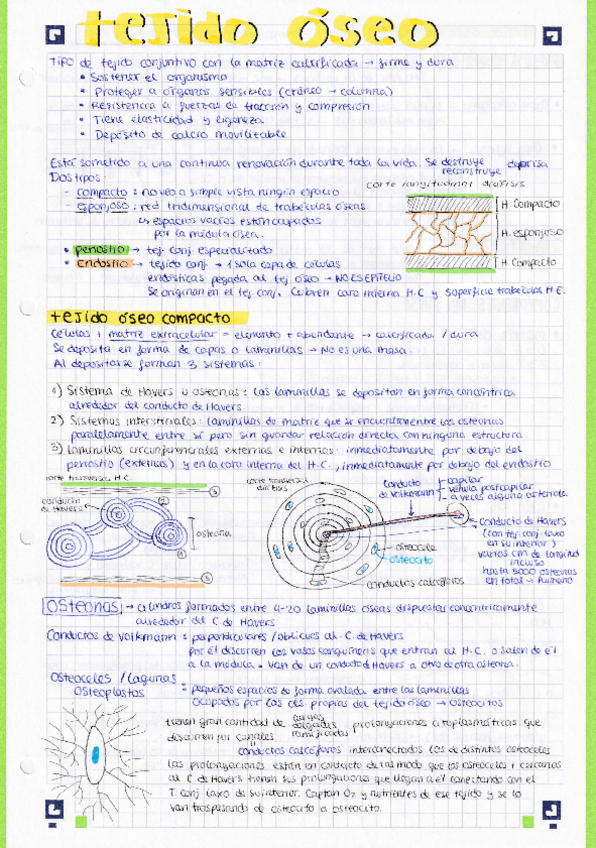 tejido óseo
Tipo de tejido conjuntivo con la matriz calcificada → firme y dura
• Sostener el organismo
• Proteger a órganos sensibles (cráneo → columna)
• Resistencia a fuerzas de tracción y compresión
• Tiene elasticidad y ligereza
• Depósito de calcio movilizable
Está sometido a una continua renovación durante toda la vida. Se destruye deprisa
reconstruye
Dos tipos:
- compacto: no veo a simple vista ningún espacio
- esponjoso: red tridimensional de trabéculas óseas
↳ espacios vacíos están ocupados
por la médula ósea.
corte longitudinal diáfisis
H. Compacto
H. esponjoso
H. Compacto
• periostio → tej. conj. especializado
• Endostio → tejido conj. → 1 sola capa de células
endósticas pegada al tej. óseo → NO ES EPITELIO
Se originan en el tej. conj. Cubren cara interna H.C y superficie trabéculas H.E.
tejido óseo compacto
Células + matriz extracelular = elemento + abundante → calcificada / dura
Se deposita en forma de capas o laminillas → No es una masa.
Al depositarse forman 3 sistemas:
1) Sistema de Havers u osteonas: las laminillas se depositan en forma concéntrica
alrededor del conducto de Havers
2) Sistemas intersticiales: laminillas de matriz que se encuentran entre las osteonas
paralelamente entre sí pero sin guardar relación directa con ninguna estructura.
3) Laminillas circunferenciales externas e internas: inmediatamente por debajo del
periostio (externas) y en la cara interna del H.C., inmediatamente por debajo del endostio
corte transversal H.C.
conducto de Havers
osteona
3
2
1
3
corte transversal
diáfisis
conducto
de Volkmann
capilar
vénula postcapilar
a veces alguna arteriola
conducto de Havers
(con tej. conj. laxo
en su interior)
varios cm de longitud
incluso
hasta 5000 osteonas
en total → humano
osteocele
osteocito
conductos calcóforos
Osteonas → cilindros formados entre 4-20 laminillas óseas dispuestas concéntricamente
alrededor del C. de Havers
Conductos de Volkmann: perpendiculares / oblicuos al C. de Havers
por él discurren los vasos sanguíneos que entran al H.C. o salen de él
a la médula. Van de un conducto d Havers a otro de otra osteona.
Osteoceles / lagunas
Osteoplastos
= pequeños espacios de forma ovalada entre las laminillas
ocupados por las cls. propias del tejido óseo → osteocitos
tienen gran cantidad de largas delgadas ramificadas prolongaciones citoplasmáticas que
discurren por canales
conductos calcóforos interconectados los de distintos osteoceles
las prolongaciones están en contacto de tal modo que los osteoceles + cercanos
al C. de Havers tienen sus prolongaciones que llegan a él conectando con el
T. conj. laxo de su interior. Captan O₂ y nutrientes de ese tejido y se lo
van traspasando de osteocito a osteocito.